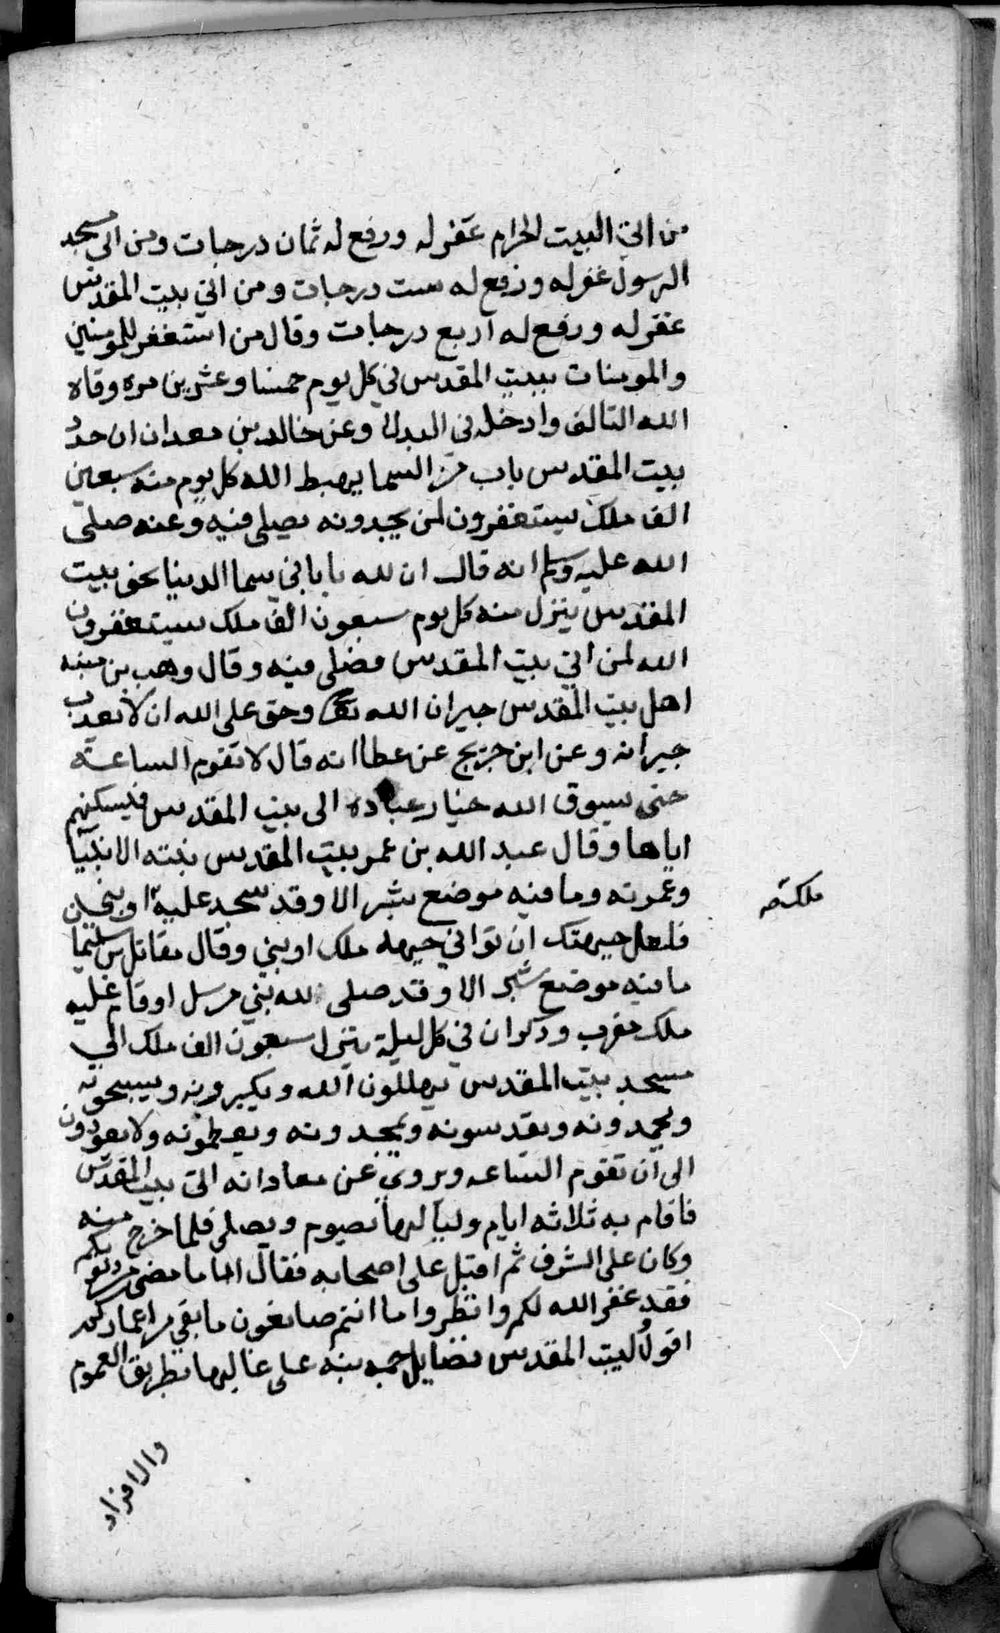 من اتى البيت الحرام غفر له ورفع له ثمان درجات ومن اتى مسجد
الرسول غفر له ورفع له ست درجات ومن اتى بيت المقدس
غفر له ورفع له اربع درجات وقال من استغفر للمومنين
والمومنات ببيت المقدس في كل يوم خمسا وعشرين مره وقاه
الله التالف وادخله في البدلا وعن خالد بن معدان ان حدد
بيت المقدس باب من السما يهبط الله كل يوم منه سبعين
الف ملك يستغفرون لمن يجدونه يصلى فيه وعنه صلى
الله عليه وسلم انه قال ان لله بابا في سما الدنيا نحو بيت
المقدس ينزل منه كل يوم سبعون الف ملك يستغفرون
الله لمن اتى بيت المقدس فصلى فيه وقال وهب بن منبه
اهل بيت المقدس جيران الله تعالى وحق على الله ان لا يعذب
جيرانه وعن ابن جريج عن عطا انه قال لا تقوم الساعة
حتى يسوق الله خيار عباده الى بيت المقدس فيسكنهم
اياها وقال عبد الله بن عمر بيت المقدس بنته الانبيآ
وعمرته وما فيه موضع شبر الا وقد سجد عليه او بنى
ملك
فلعل جبهتك ان توافي جبهة ملك او بني وقال مقاتل بن سليما
ما فيه موضع شبر الا وقد صلى لله بني مرسل او قام عليه
ملك مقرب وذكر ان في كل ليلة ينزل سبعون الف ملك الى
مسجد بيت المقدس يهللون الله ويكبرونه ويسبحونه
ويحمدونه ويقدسونه ويمجدونه ويعظمونه ولا يعودون
الى ان تقوم الساعه ويروى عن معاذ انه اتى بيت المقدس
فاقام به ثلاثه ايام ولياليها يصوم ويصلى فلما خرج منه
وكان على الشرف ثم اقبل على اصحابه فقال اما ما مضى من ذنوبكم
فقد غفر الله لكم وانظروا ما انتم صانعون ما بقي من اعماركم
اقول لبيت المقدس فضايل جمه على غالبها بطريق العموم
والافراد